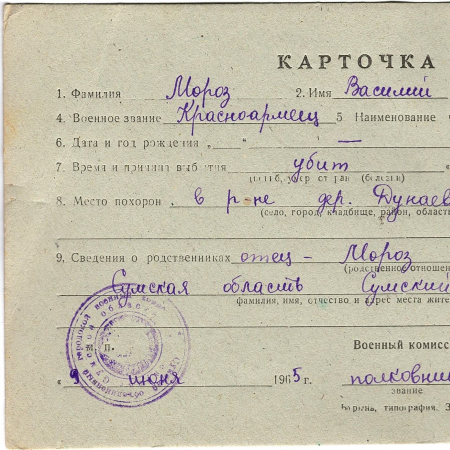 КАРТОЧКА
1. Фамилия Мороз 2. Имя Василий
4. Военное звание Красноармеец 5. Наименование
6. Дата и год рождения „ “ —
7. Время и причина выбытия убит
8. Место похорон. в р-не дер. Дунаев
(село, город, кладбище, район, област
9. Сведения о родственниках отец - Мороз
(родственное отношен
Сумская область Сумский
фамилия, имя, отчество и адрес места жите
М. П.
Военный комисс
„9 июня 1965 г. полковни
звание
типография. З